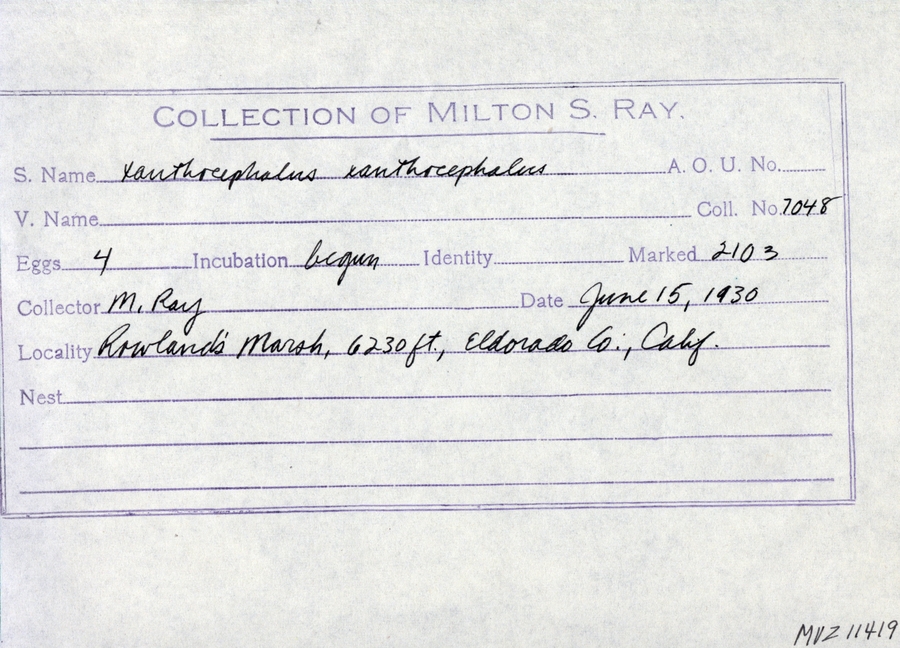 COLLECTION OF MILTON S. RAY.
S. Name Xanthocephalus xanthocephalus A. O. U. No.
V. Name Coll. No. 7048
Eggs 4 Incubation begun Identity Marked 2103
Collector M. Ray Date June 15, 1930
Locality Rowland's Marsh, 6230 ft., Eldorado Co., Calif.
Nest
MVZ 11419